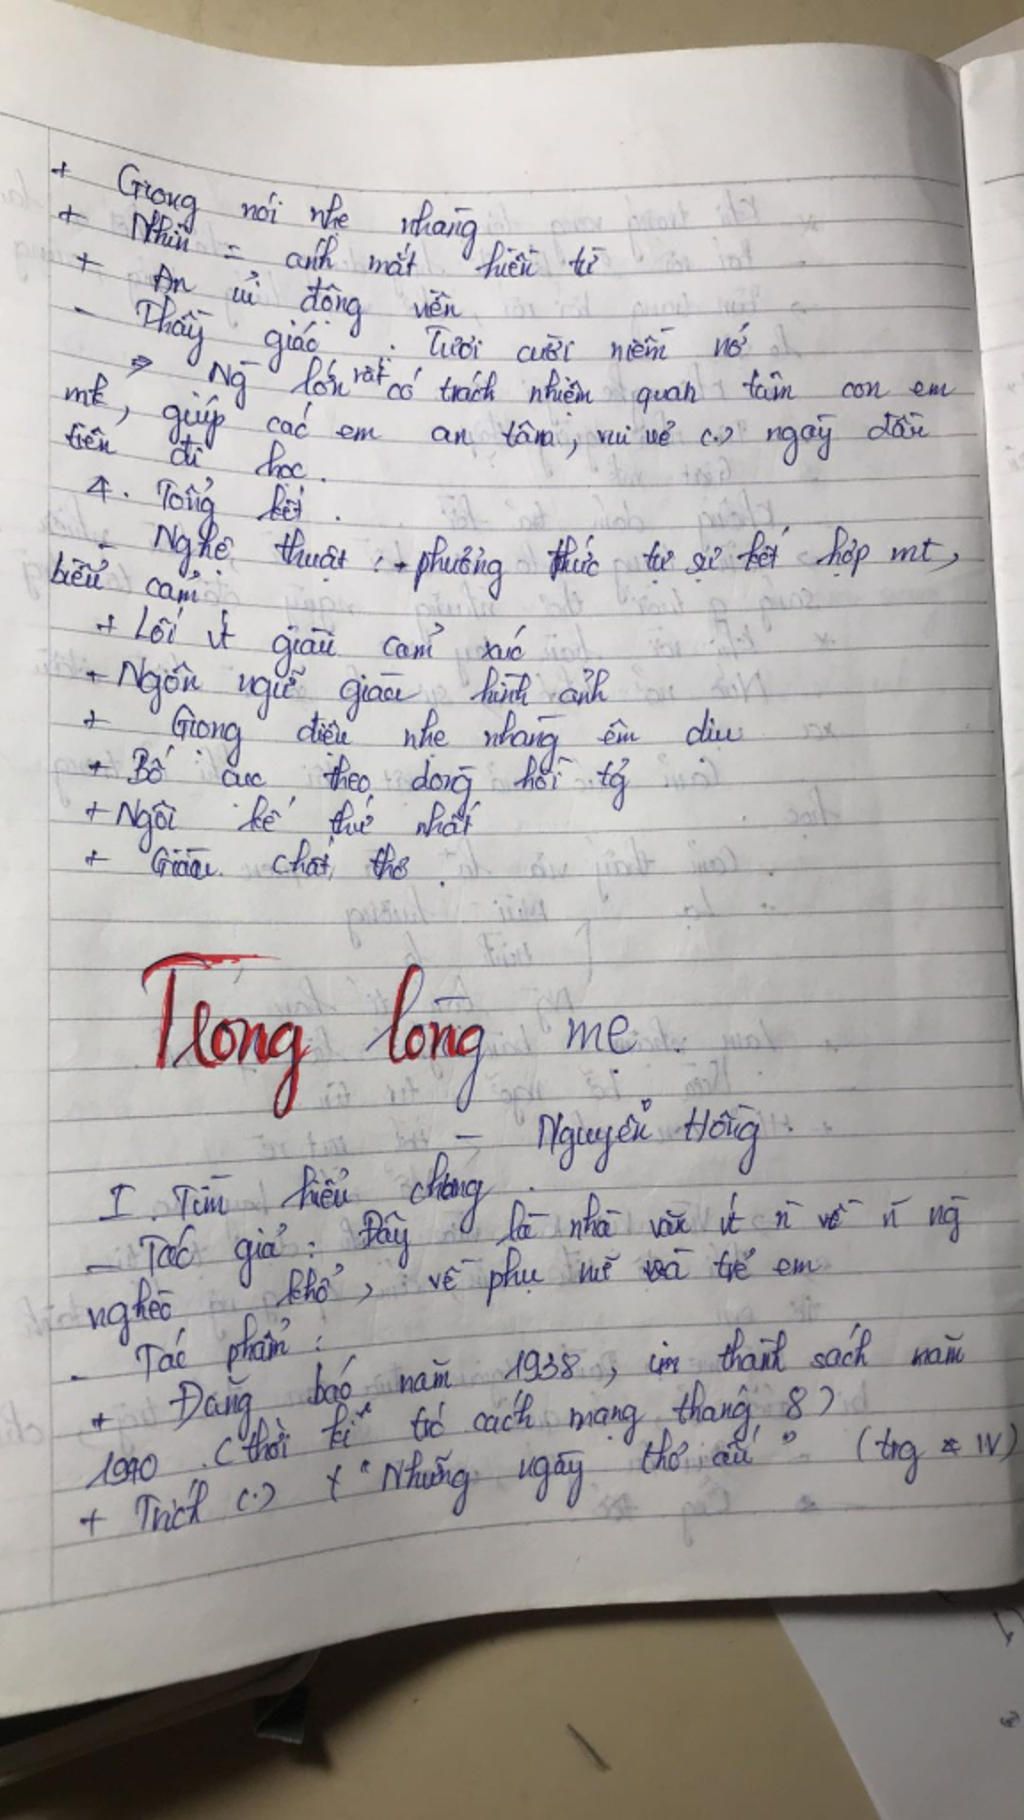 + Giọng nói nhẹ nhàng
+ Nhìn = ánh mắt hiền từ
+ An ủi động viên
- Thầy giáo : Tươi cười niềm nở
=> Ng lớn rất có trách nhiệm quan tâm con em
mk, giúp các em an tâm, vui vẻ (.) ngày đầu
tiên đi học.
4. Tổng kết.
- Nghệ thuật : + phương thức tự sự kết hợp mt,
biểu cảm
+ Lối vt giàu cảm xúc
+ Ngôn ngữ giàu hình ảnh
+ Giọng điệu nhẹ nhàng êm dịu
+ Bố cục theo dòng hồi tg
+ Ngôi kể thứ nhất
+ Giàu chất thơ.
Trong lòng mẹ.
- Nguyên Hồng.
I. Tìm hiểu chung.
- Tác giả : Đây là nhà văn vt n̄ về n̄ ng
nghèo khổ, về phụ nữ và trẻ em
- Tác phẩm :
+ Đăng báo năm 1938, in thành sách năm
1940. (thời kì trc cách mạng tháng 8)
+ Trích (.) "Những ngày thơ ấu" (trg IV)